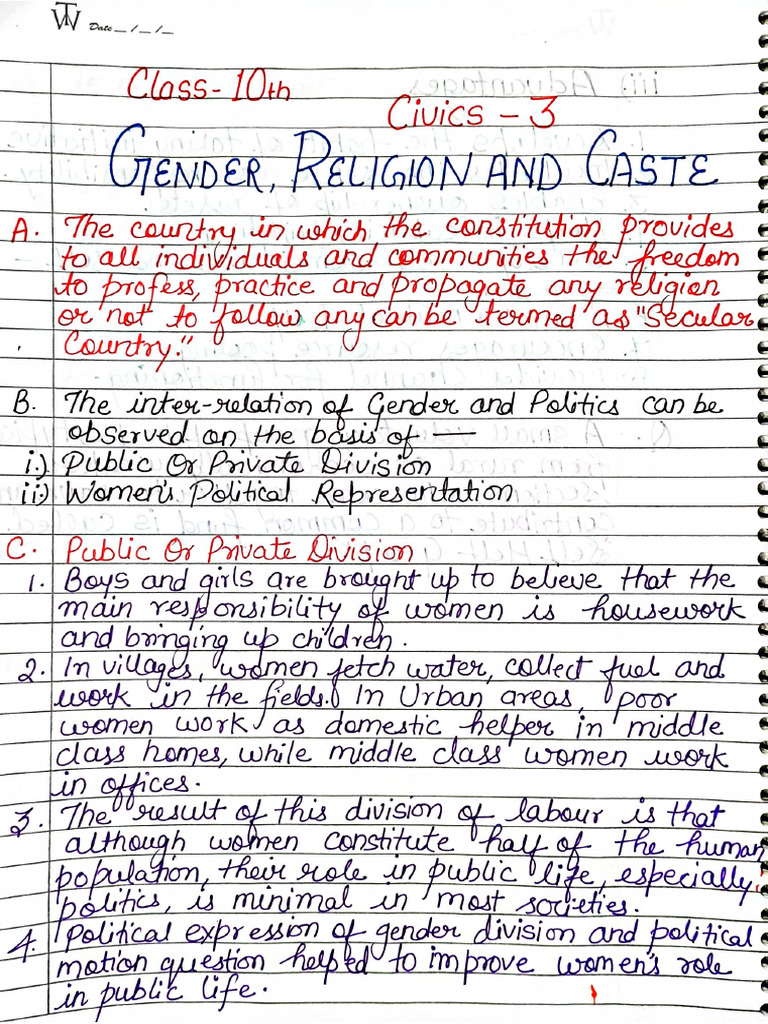 TW Date _/_/_
Class-10th
Civics - 3
GENDER, RELIGION AND CASTE
A. The country in which the constitution provides
to all individuals and communities the freedom
to profess, practice and propagate any religion
or not to follow any can be termed as "Secular
Country."
B. The inter-relation of Gender and Politics can be
observed on the basis of —
i.) Public Or Private Division
ii.) Women's Political Representation
C. Public Or Private Division
1. Boys and girls are brought up to believe that the
main responsibility of women is housework
and bringing up children.
2. In villages, women fetch water, collect fuel and
work in the fields. In Urban areas, poor
women work as domestic helper in middle
class homes, while middle class women work
in offices.
3. The result of this division of labour is that
although women constitute half of the human
population, their role in public life, especially
politics, is minimal in most societies.
4. Political expression of gender division and political
motion question helped to improve women's role
in public life.